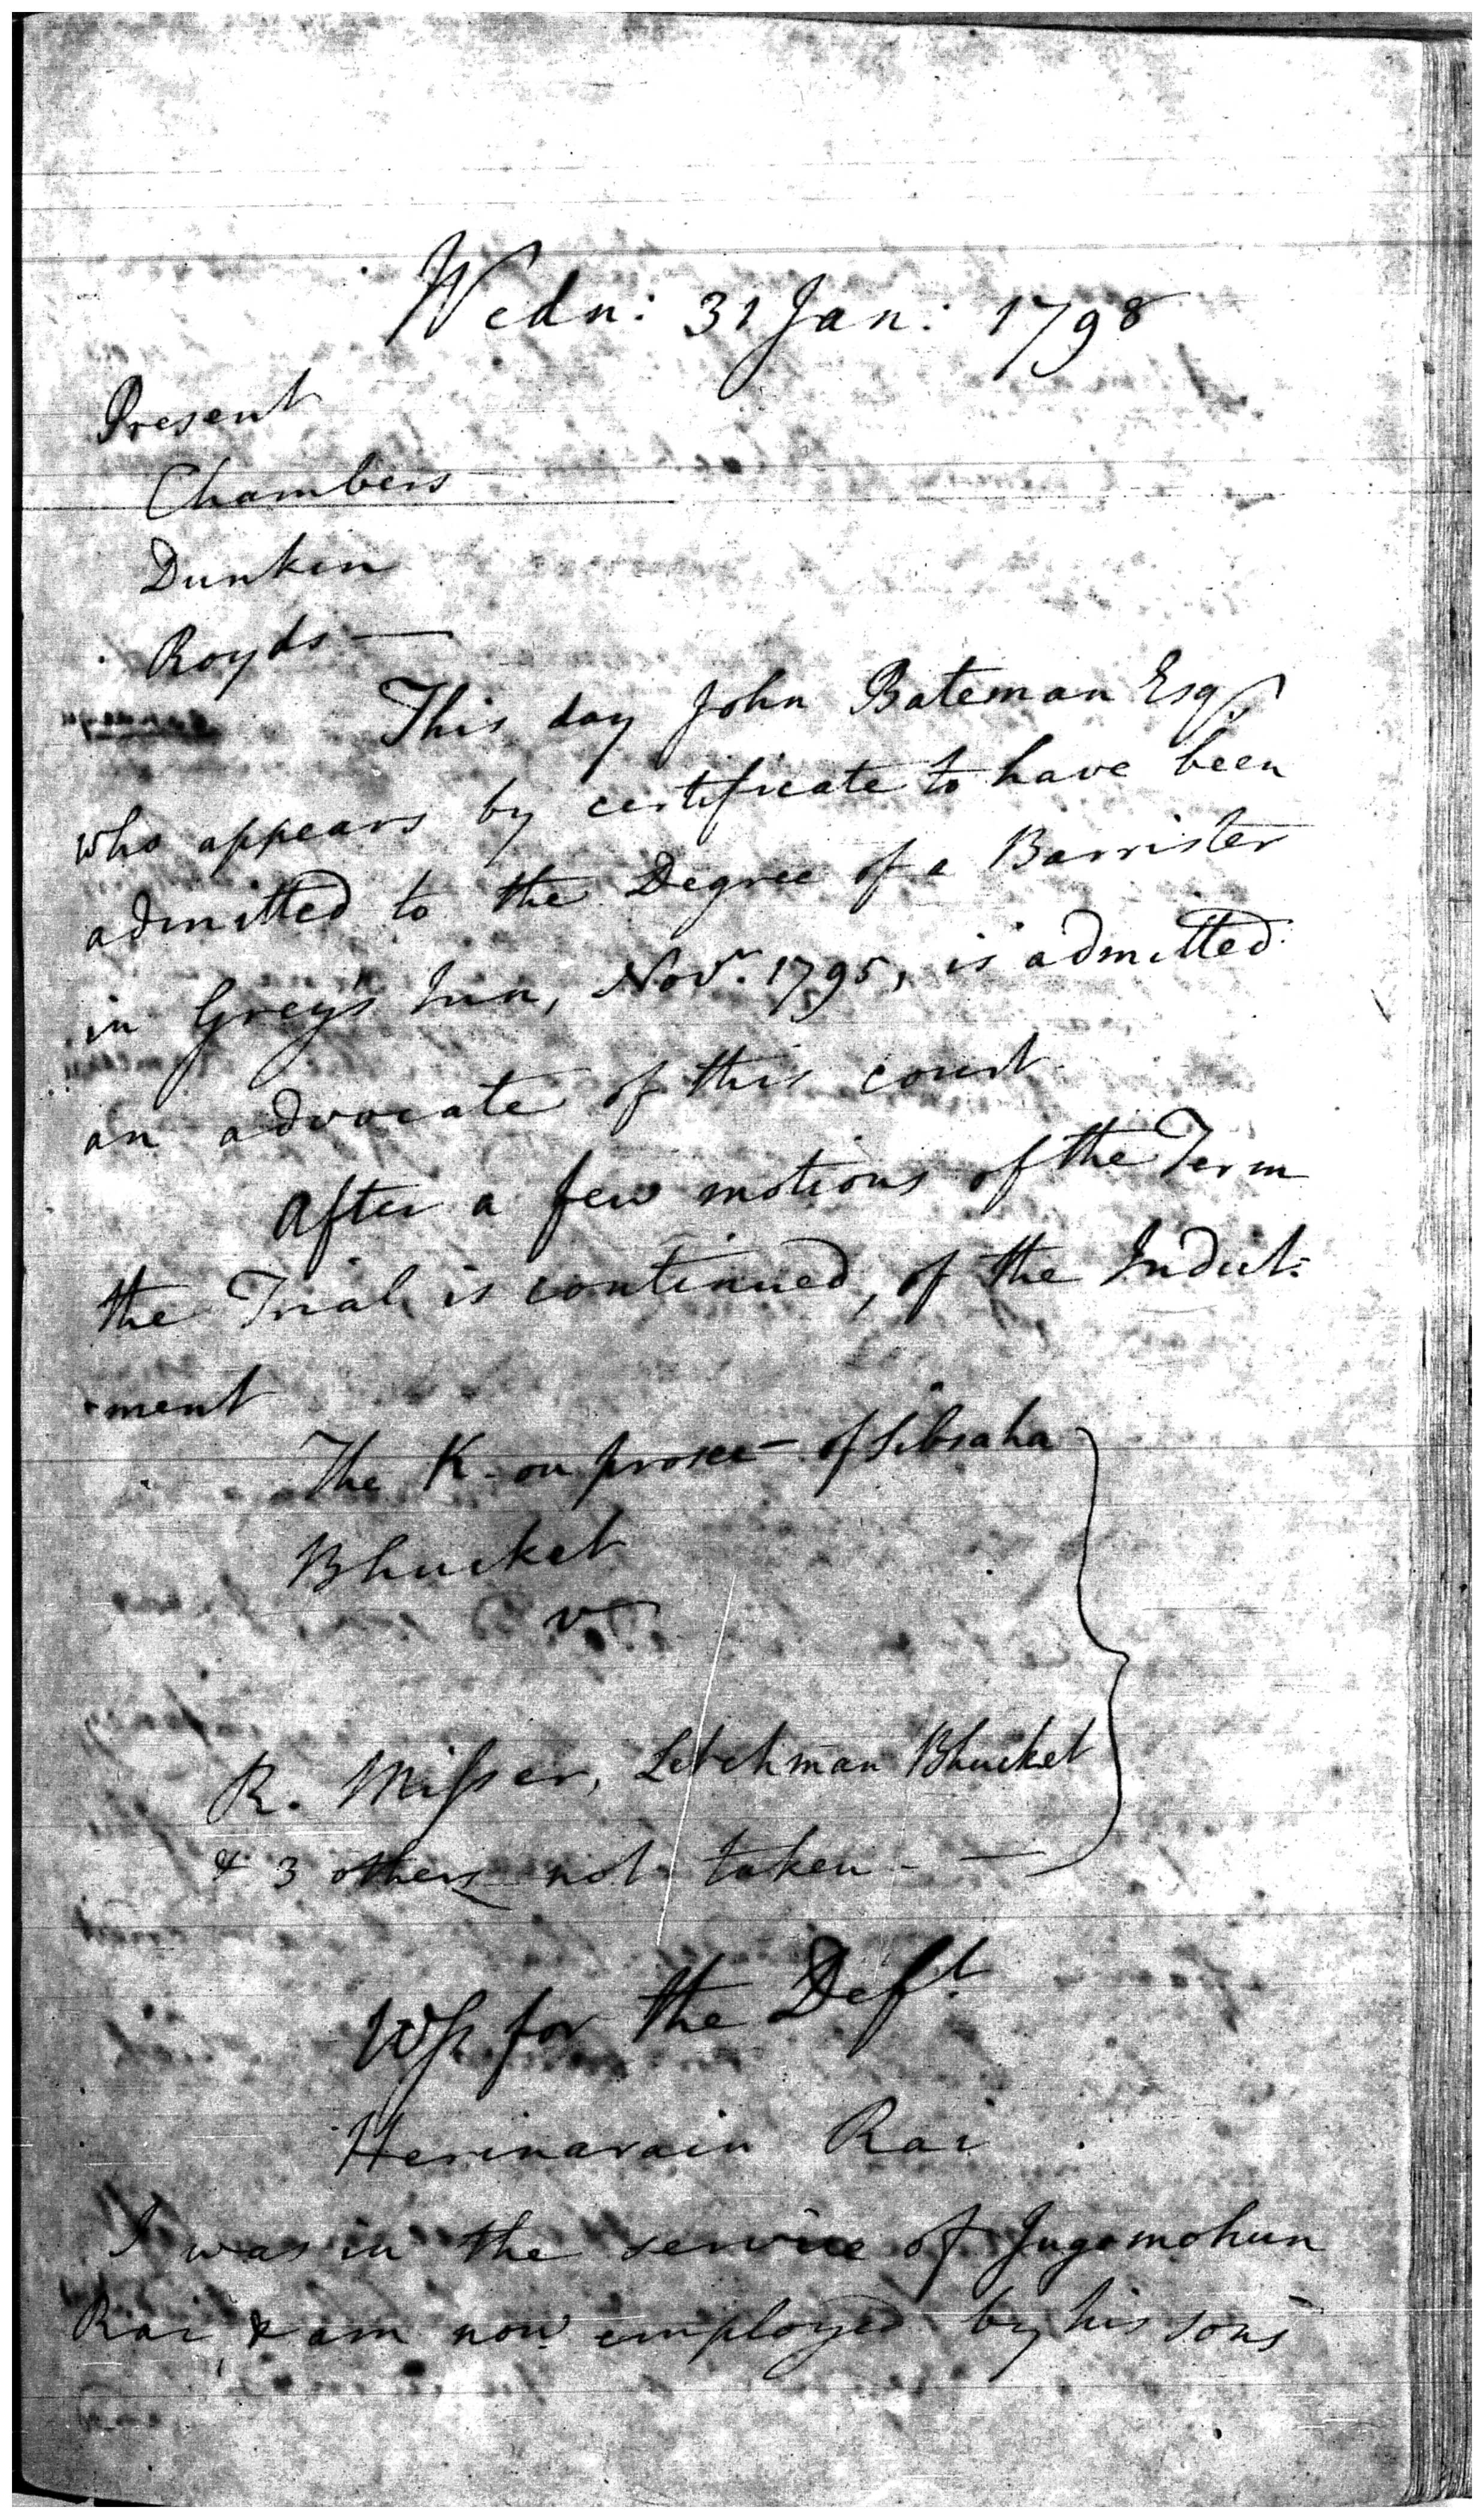 Wedn: 31 Jan: 1798
Present
Chambers
Dunkin
Royds —
This day John Bateman Esqr.
who appears by certificate to have been
admitted to the Degree of a Barrister
in Grey's Inn, Novr. 1795, is admitted
an advocate of this court
After a few motions of the Term
the Trial is continued, of the Indict:
-ment
The K - on prosec - of Sibsaha
Bhucket
v
R. Misser, Letchman Bhucket
& 3 others not taken - —
Wss for the Deft.
Herinarain Rai
I was in the service of Jugomohun
Rai, & am now employed by his sons